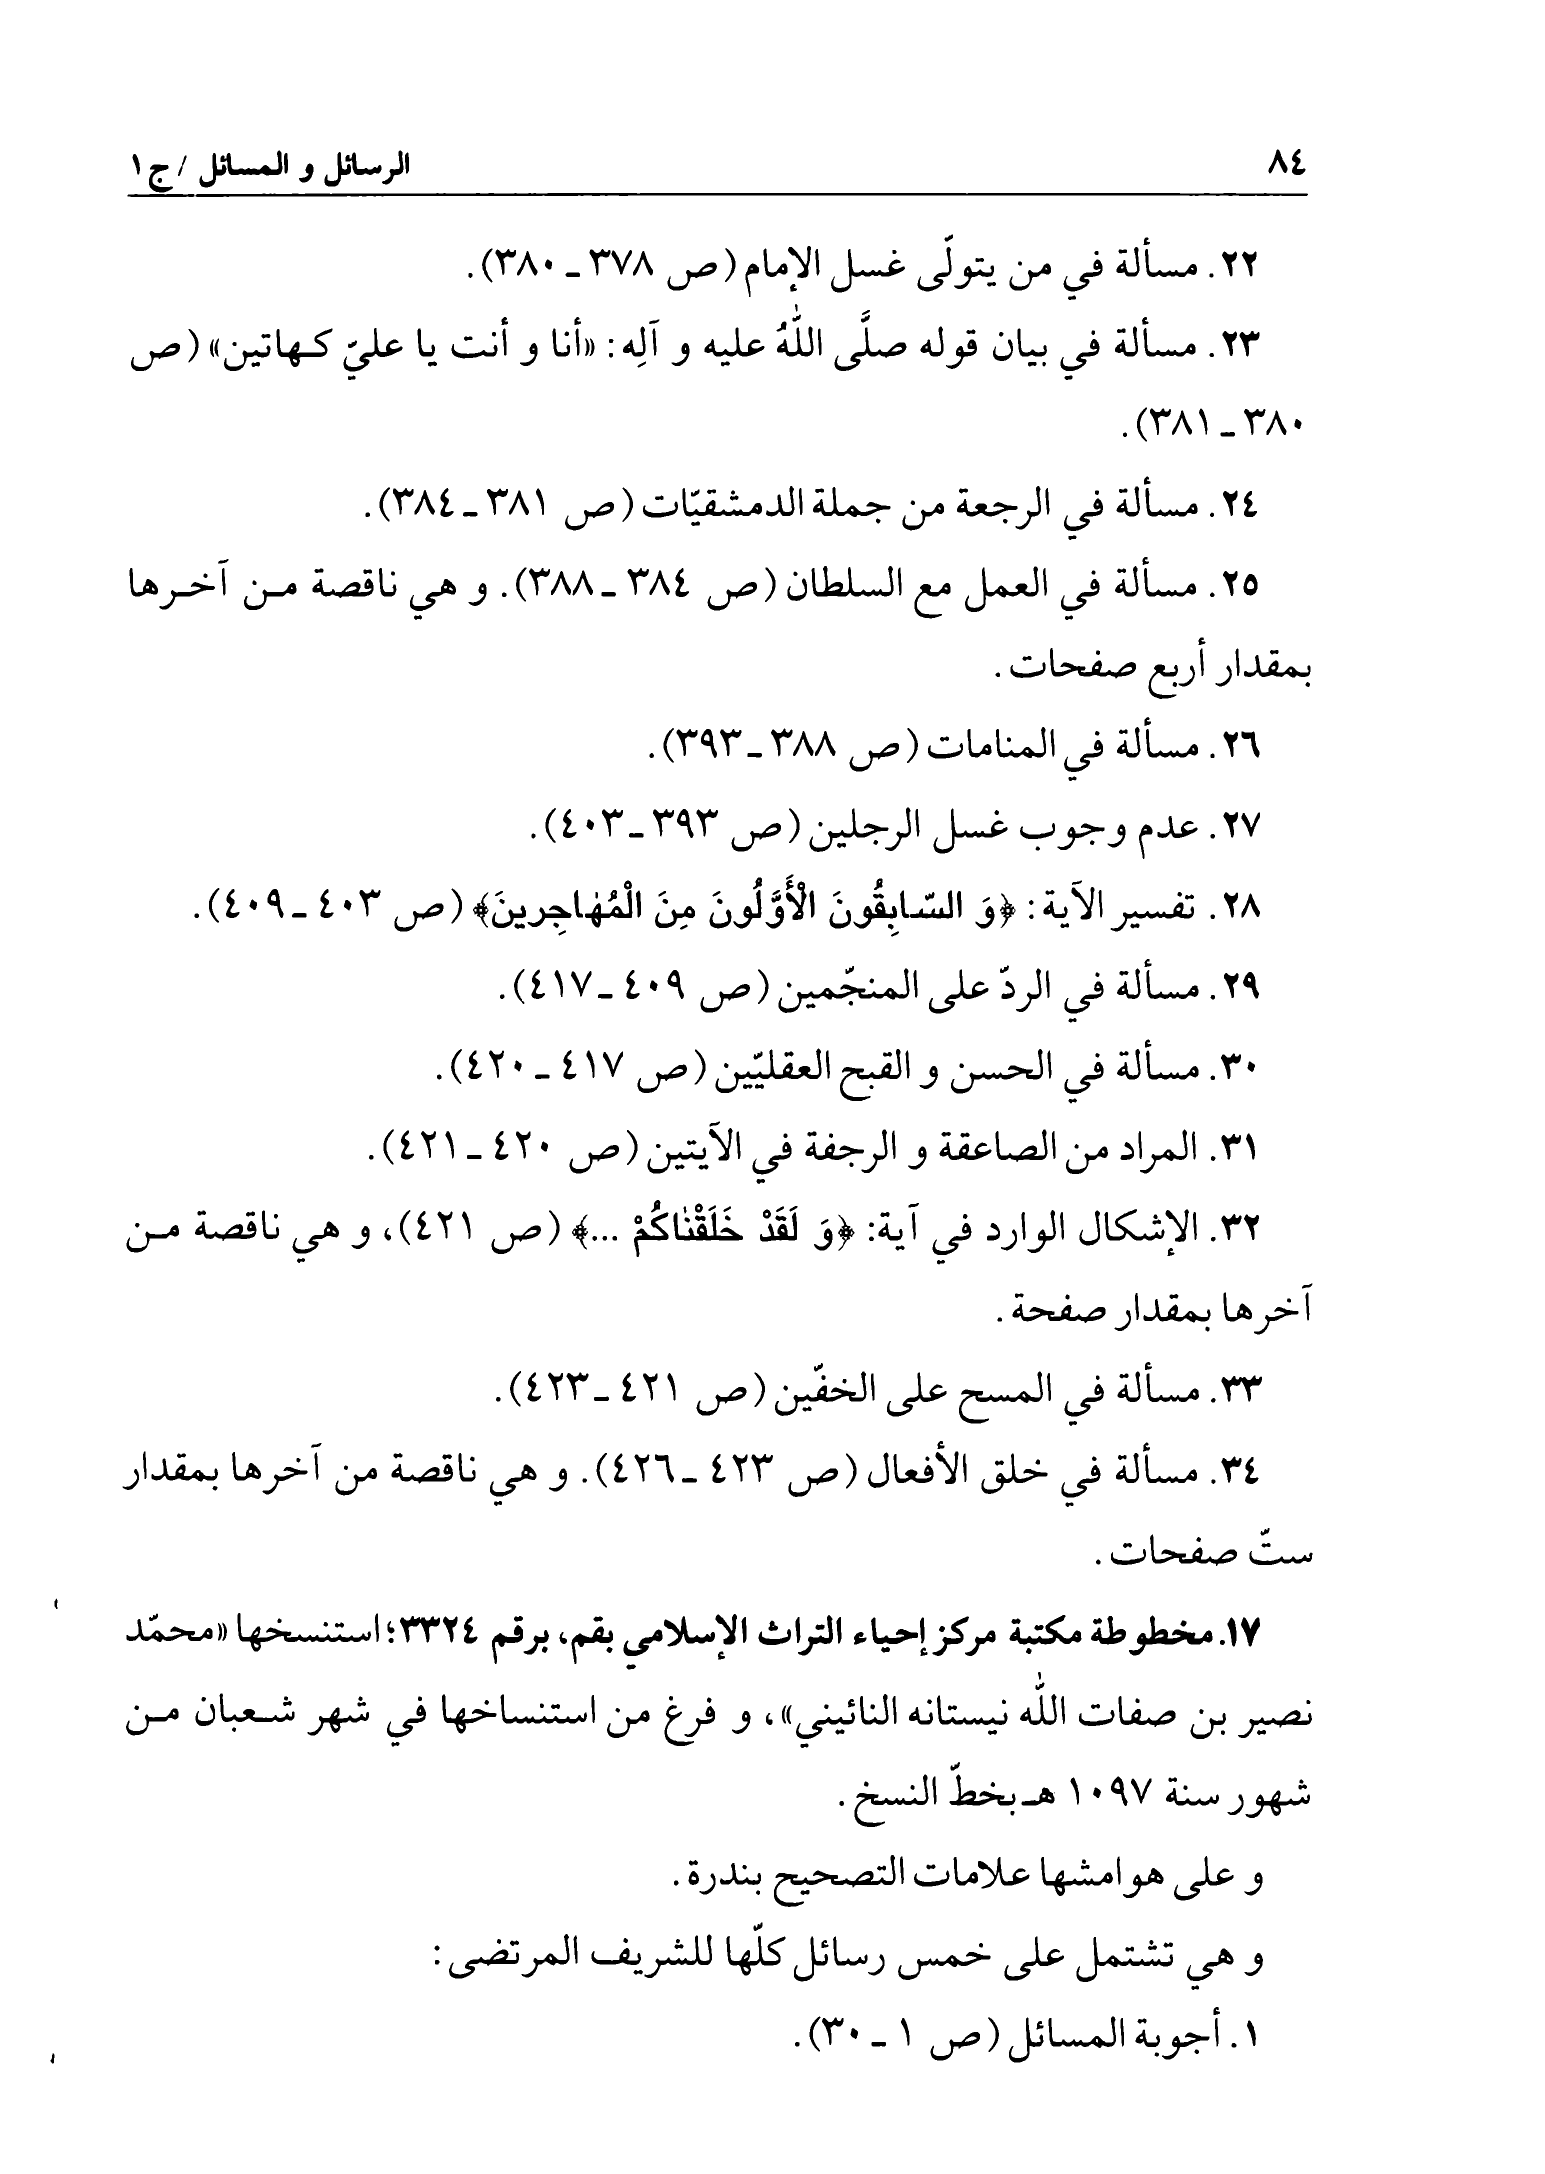 ٨٤ الرسائل و المسائل / ج١
٢٢. مسألة في من يتولّى غسل الإمام (ص ٣٧٨ ـ ٣٨٠).
٢٣. مسألة في بيان قوله صلَّى اللّٰهُ عليه و آلِه: «أنا و أنت يا عليّ كـهاتين» (ص
٣٨٠ ـ ٣٨١).
٢٤. مسألة في الرجعة من جملة الدمشقيّات (ص ٣٨١ ـ ٣٨٤).
٢٥. مسألة في العمل مع السلطان (ص ٣٨٤ ـ ٣٨٨). و هي ناقصة مـن آخـرها
بمقدار أربع صفحات.
٢٦. مسألة في المنامات (ص ٣٨٨ ـ ٣٩٣).
٢٧. عدم وجوب غسل الرجلين (ص ٣٩٣ ـ ٤٠٣).
٢٨. تفسير الآية: ﴿وَ السّابِقُونَ الْأَوَّلُونَ مِنَ الْمُهٰاجِرينَ﴾ (ص ٤٠٣ ـ ٤٠٩).
٢٩. مسألة في الردّ على المنجّمين (ص ٤٠٩ ـ ٤١٧).
٣٠. مسألة في الحسن و القبح العقليّين (ص ٤١٧ ـ ٤٢٠).
٣١. المراد من الصاعقة و الرجفة في الآيتين (ص ٤٢٠ ـ ٤٢١).
٣٢. الإشكال الوارد في آية: ﴿وَ لَقَدْ خَلَقْنٰاكُمْ ...﴾ (ص ٤٢١)، و هي ناقصة مـن
آخرها بمقدار صفحة.
٣٣. مسألة في المسح على الخفّين (ص ٤٢١ ـ ٤٢٣).
٣٤. مسألة في خلق الأفعال (ص ٤٢٣ ـ ٤٢٦). و هي ناقصة من آخرها بمقدار
ستّ صفحات.
١٧. مخطوطة مكتبة مركز إحياء التراث الإسلامي بقم، برقم ٣٣٢٤؛ استنسخها «محمّد
نصير بن صفات اللّٰه نيستانه النائيني»، و فرغ من استنساخها في شهر شـعبان مـن
شهور سنة ١٠٩٧ هـ بخطّ النسخ.
و على هوامشها علامات التصحيح بندرة.
و هي تشتمل على خمس رسائل كلّها للشريف المرتضى:
١. أجوبة المسائل (ص ١ ـ ٣٠).